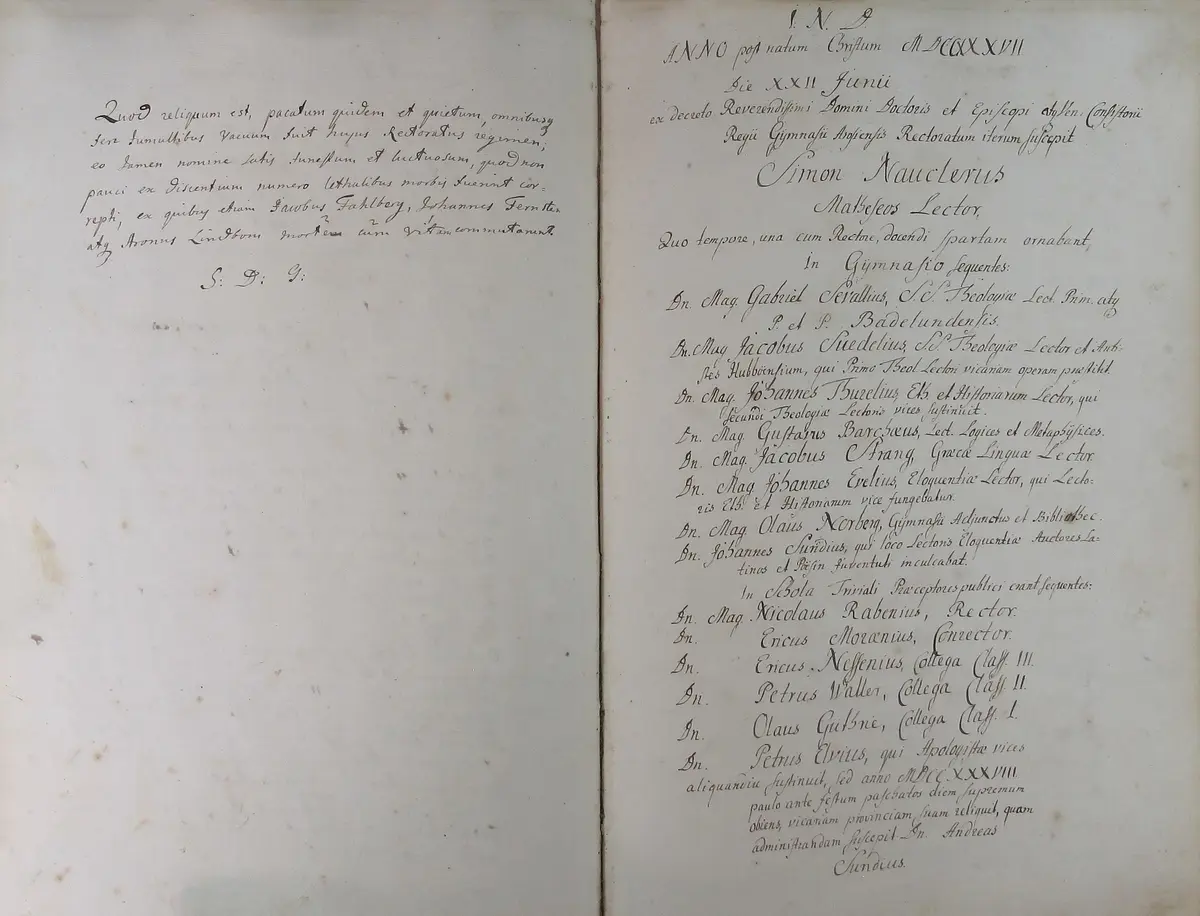 Quod reliquum est, pacatum quidem et quietum, omnibusq
fere tumultibus vacuum fuit hujus Rectoratus regimen;
eo tamen nomine satis funestum et luctuosum, quod non
pauci ex discentium numero lethalibus morbis fuerint cor-
repti, ex quibus etiam Jacobus Fahlberg, Johannes Fernsten
atq Aronus Lindbom mortem cum vita commutarunt.
S: D: G:
I. N. D
ANNO post natum Christum MDCCXXXVII
Die XXII Junii
ex decreto Reverendissimi Domini Doctoris et Episcopi atq Ven. Consistorii
Regii Gymnasii Arosiensis Rectoratum iterum suscepit
Simon Nauclerus
Matheseos Lector.
Quo tempore, una cum Rectore, docendi spartam ornabant,
In Gymnasio sequentes:
Dn. Mag. Gabriel Serallius, S.S. Theologiæ Lect. Prim. atq
P. et P. Badelundensis.
Dn. Mag. Jacobus Suedelius, S.S. Theologiæ Lector et Anti-
stes Hubboensium, qui Primo Theol Lectori vicariam operam præstitit.
Dn. Mag. Johannes Thurelius, Eth. et Historiarum Lector, qui
secundi Theologiæ Lectoris vices sustinuit.
Dn. Mag. Gustavus Barchæus, Lect. Logices et Metaphysices.
Dn. Mag. Jacobus Strang, Græcæ Linguæ Lector.
Dn. Mag. Johannes Evelius, Eloquentiæ Lector, qui Lecto-
ris Eth. et Historiarum vice fungebatur.
Dn. Mag. Olaus Norberg, Gymnasii Adjunctus et Bibliothec.
Dn. Johannes Sundius, qui loco Lectoris Eloquentiæ Auctores La-
tinos et Poësin juventuti inculcabat.
In Schola Triviali Præceptores publici erant sequentes:
Dn. Mag. Nicolaus Rabenius, Rector.
Dn. Ericus Morænius, Conrector.
Dn. Ericus Nessenius, Collega Class. III.
Dn. Petrus Waller, Collega Class. II.
Dn. Olaus Guthrie, Collega Class. I.
Dn. Petrus Elvius, qui Apologistæ vices
aliquandiu sustinuit, sed anno MDCCXXXVIII
paulo ante festum paschatos diem supremum
obiens, vicariam provinciam suam reliquit, quam
administrandam suscepit Dn. Andreas
Sundius.